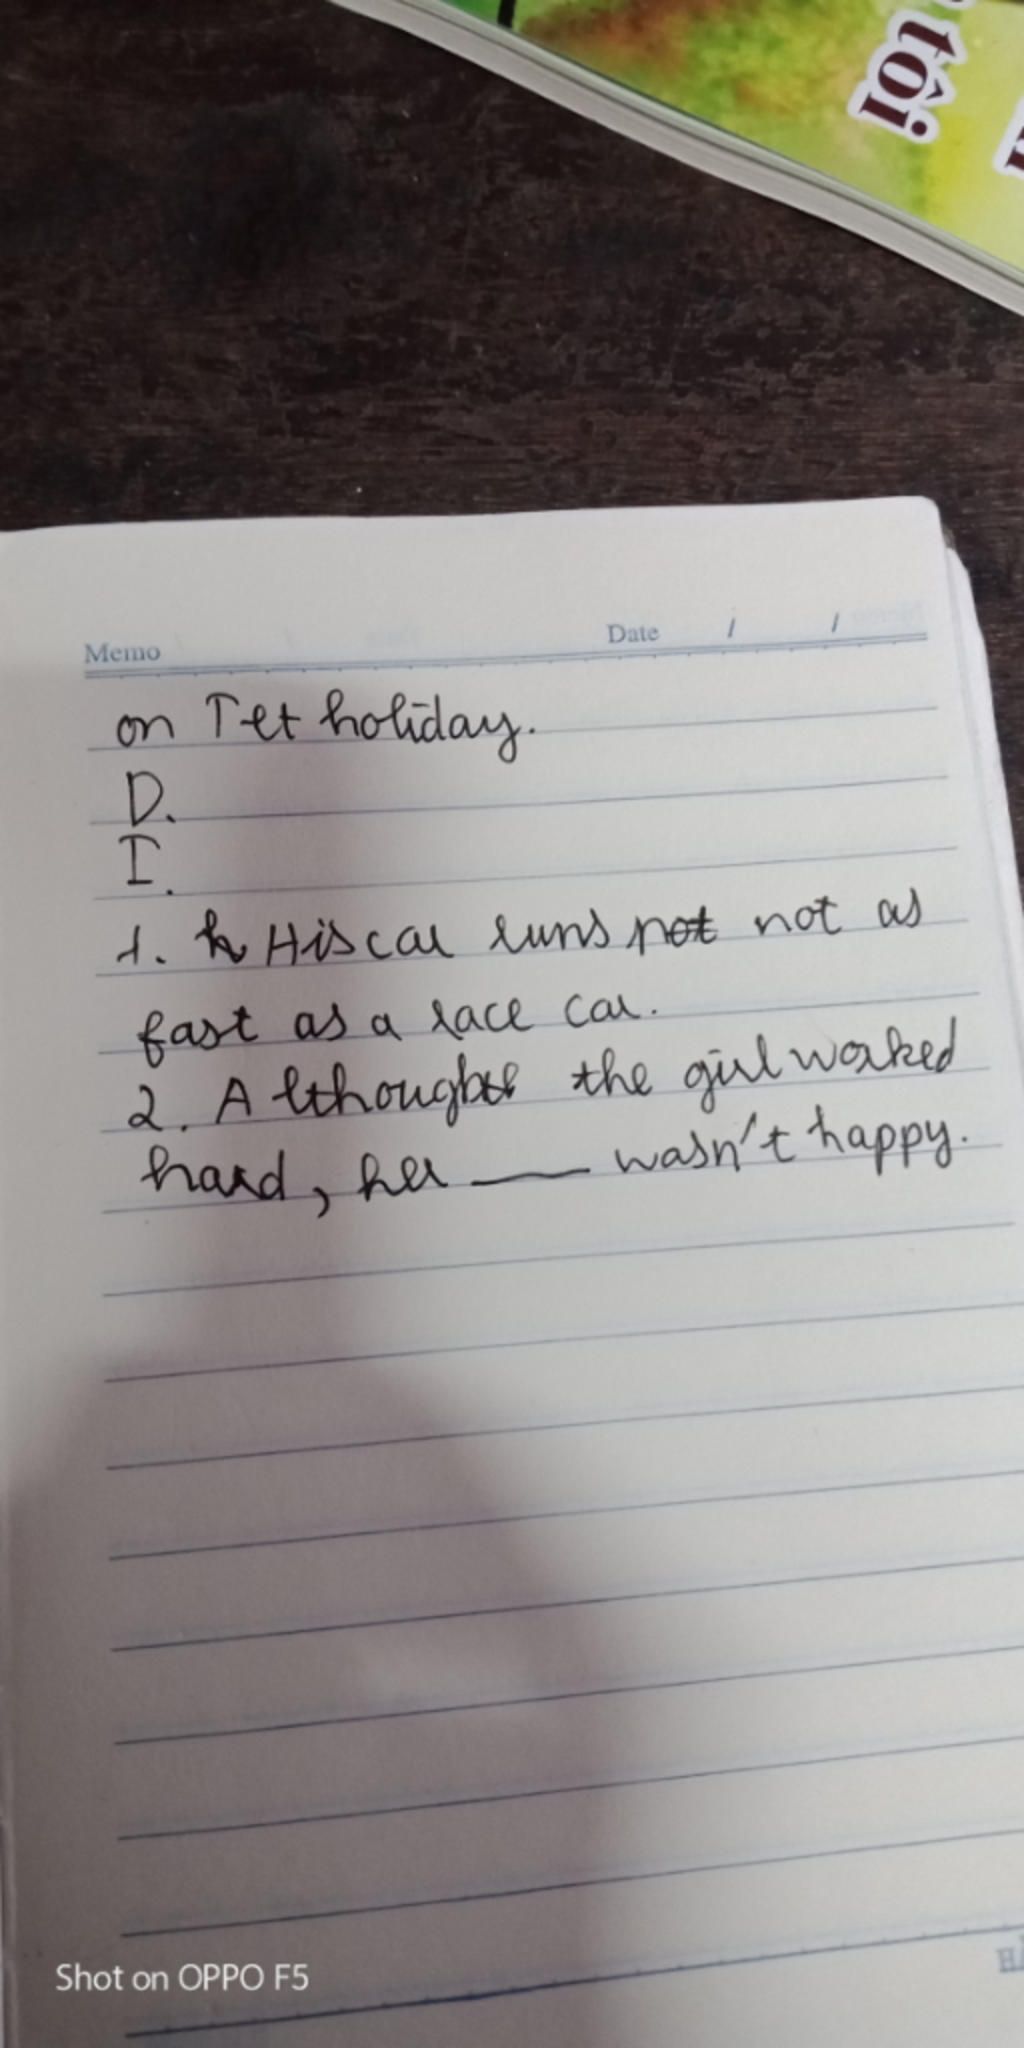 tôi
Memo Date / /
on Tet holiday.
D.
I.
1. h His car runs not not as
fast as a race car.
2. Although the girl worked
hard, her ___ wasn't happy.
Shot on OPPO F5